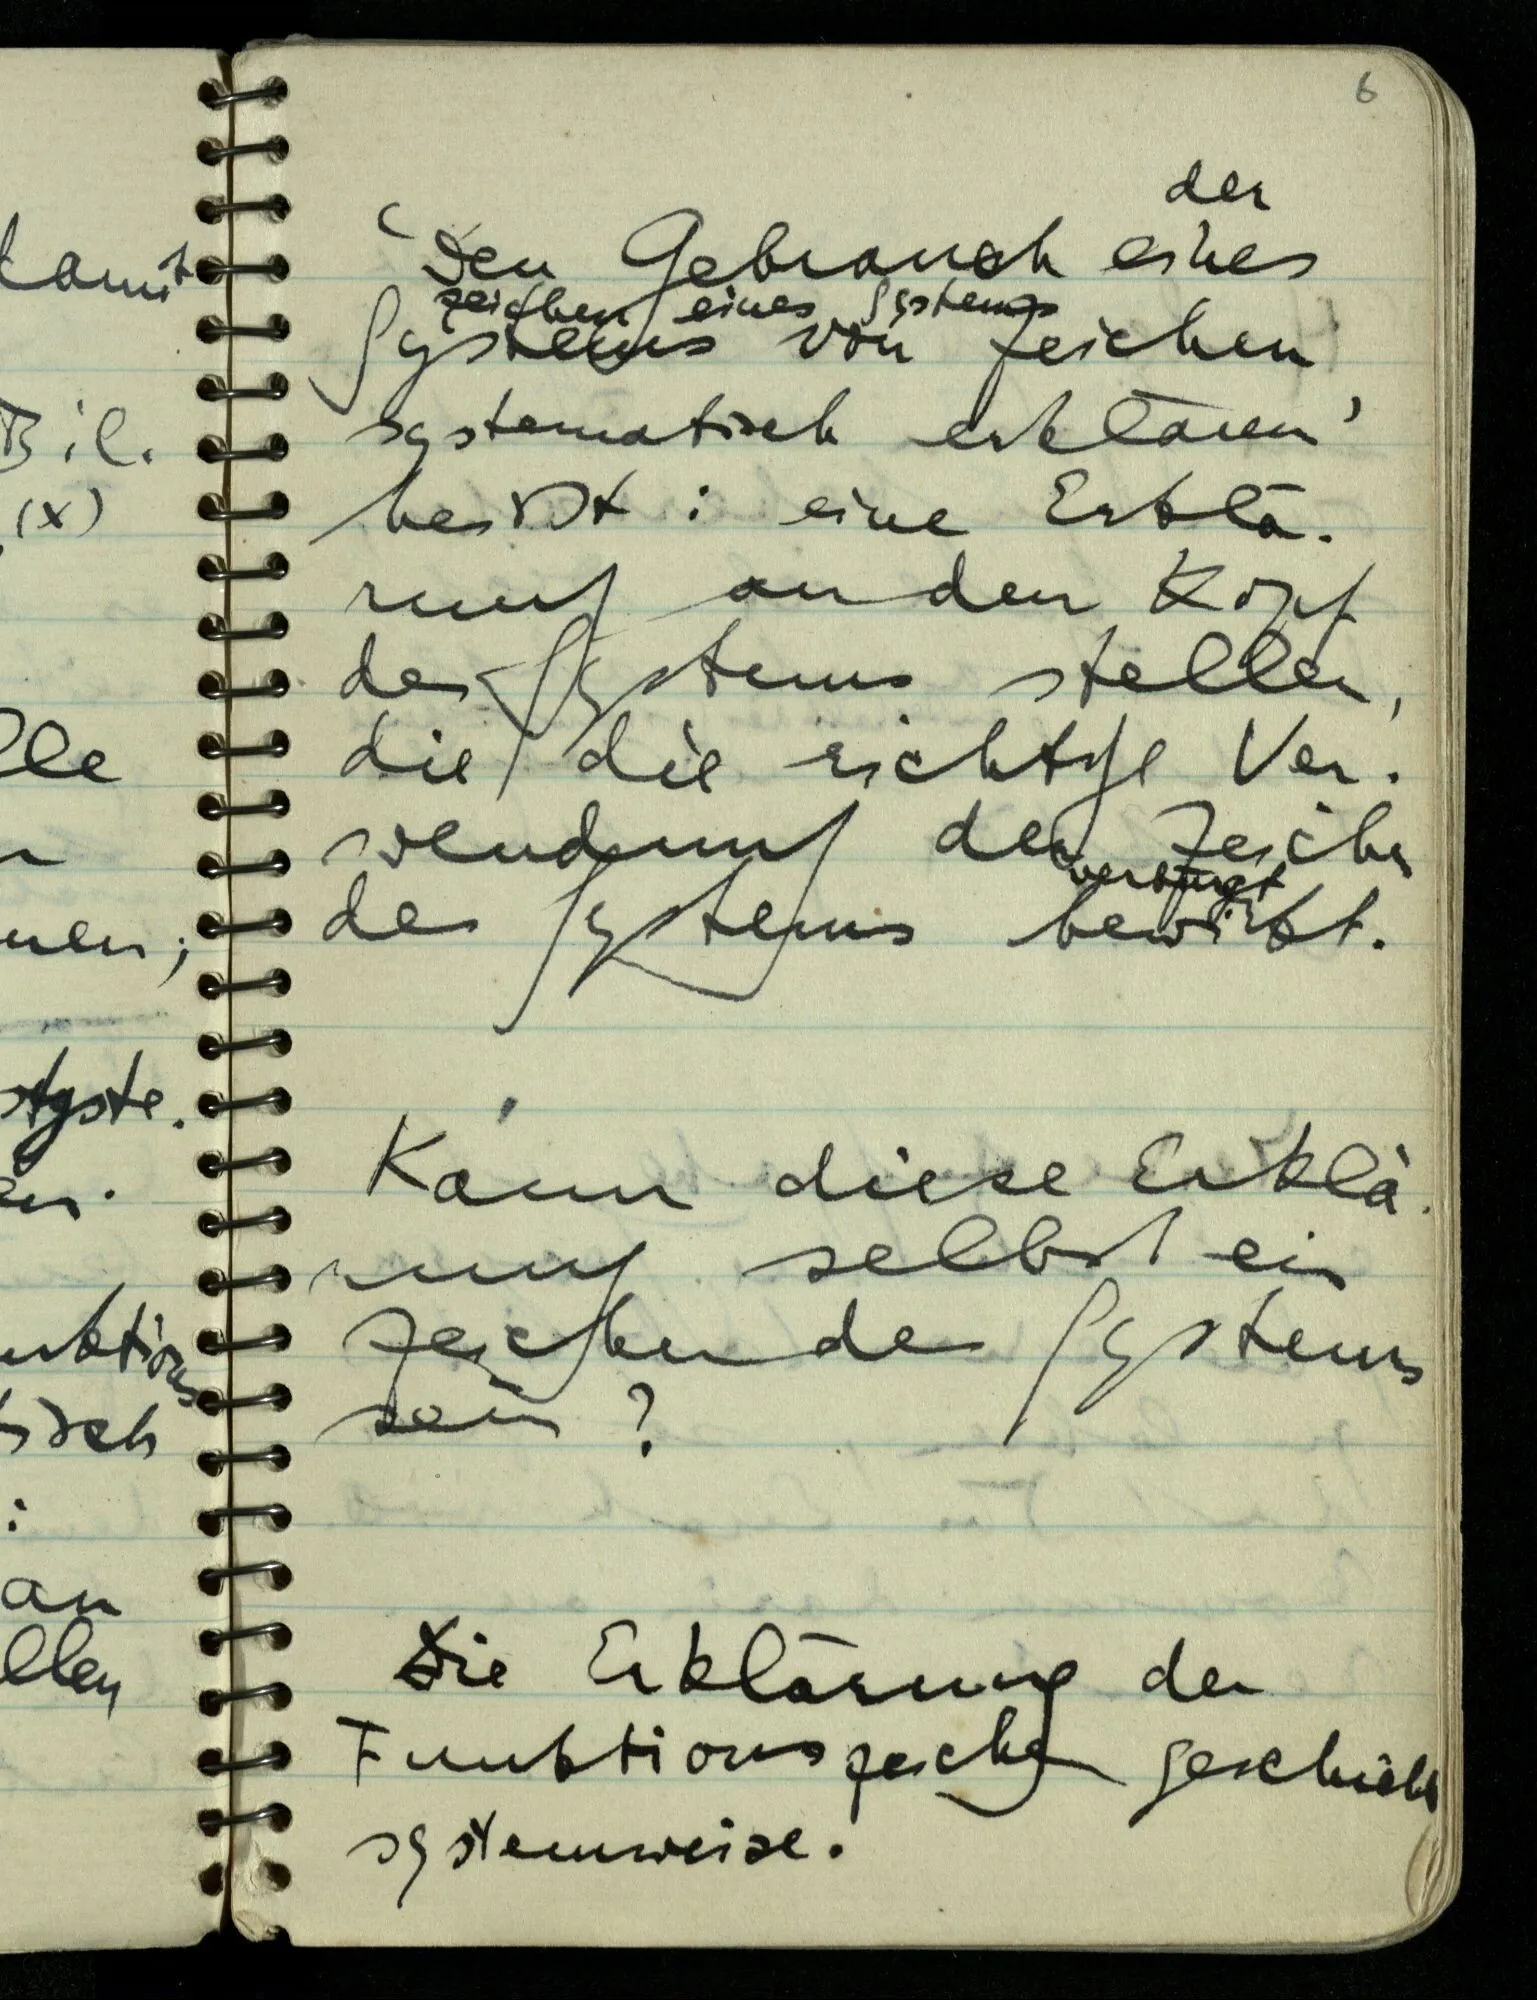 6
damit
Bil.
(x)
lle
nen;
syste.
unktions
isch
:
an
llen
der
‘Den Gebrauch eines
Zeichen eines Systems
Systems von Zeichen
systematisch erklären’
heißt: eine Erklä-
rung an den Kopf
des Systems stellen,
die die richtige Ver-
wendung der Zeichen
verbürgt
des Systems bewirkt.
Kann diese Erklä-
rung selbst ein
Zeichen des Systems
sein?
Die Erklärung der
Funktionszeichen geschieht
systemweise.